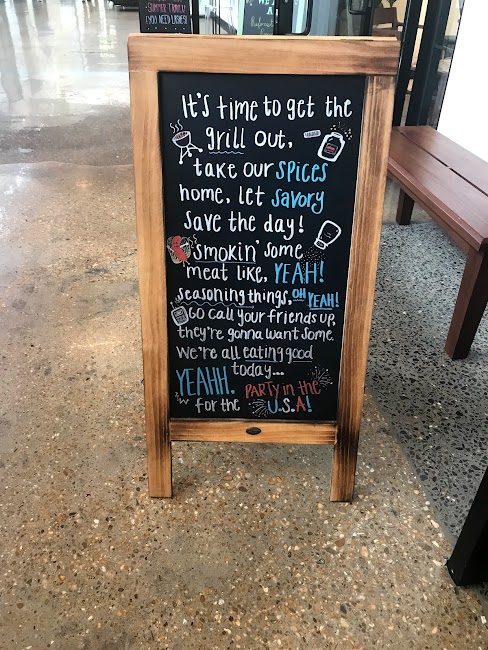 SUMMER TRAVEL?
(YOU NEED LASHES)
It's time to get the
grill out,
take our SPICES
home, let Savory
Save the day!
Smokin' some
meat like, YEAH!
seasoning things, OH YEAH!
GO call your friends up,
they're gonna want some.
We're all eating good
today...
YEAHH. PARTY in the
for the U.S.A!